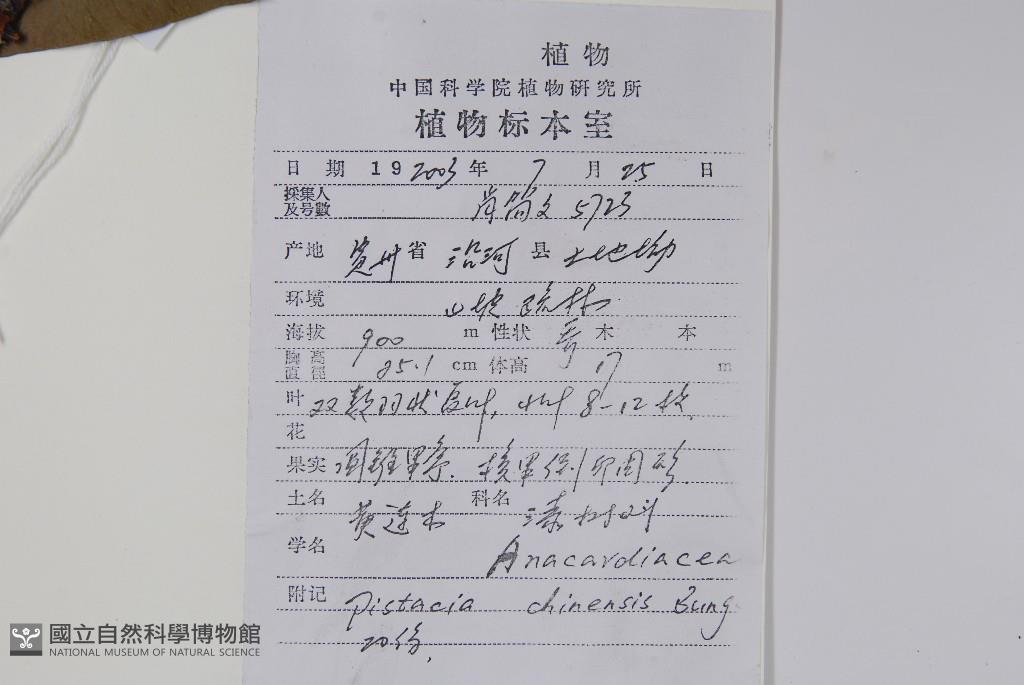 植物
中国科学院植物研究所
植物标本室
日 期 19 2003 年 7 月 25 日
採集人
及号數 5723
产地 贵州 省 沿河 县 土地坳
环境 山坡疏林
海拔 900 m 性状 乔 木 本
胸高
直徑 25.1 cm 体高 17 m
叶 双数羽状复叶, 小叶 8-12 枚.
花
果实 圆锥果序. 核果倒卵圆形.
土名 黄连木 科名 漆树科
学名 Anacardiacea
附记 Pistacia chinensis Bung
20份.
國立自然科學博物館
NATIONAL MUSEUM OF NATURAL SCIENCE